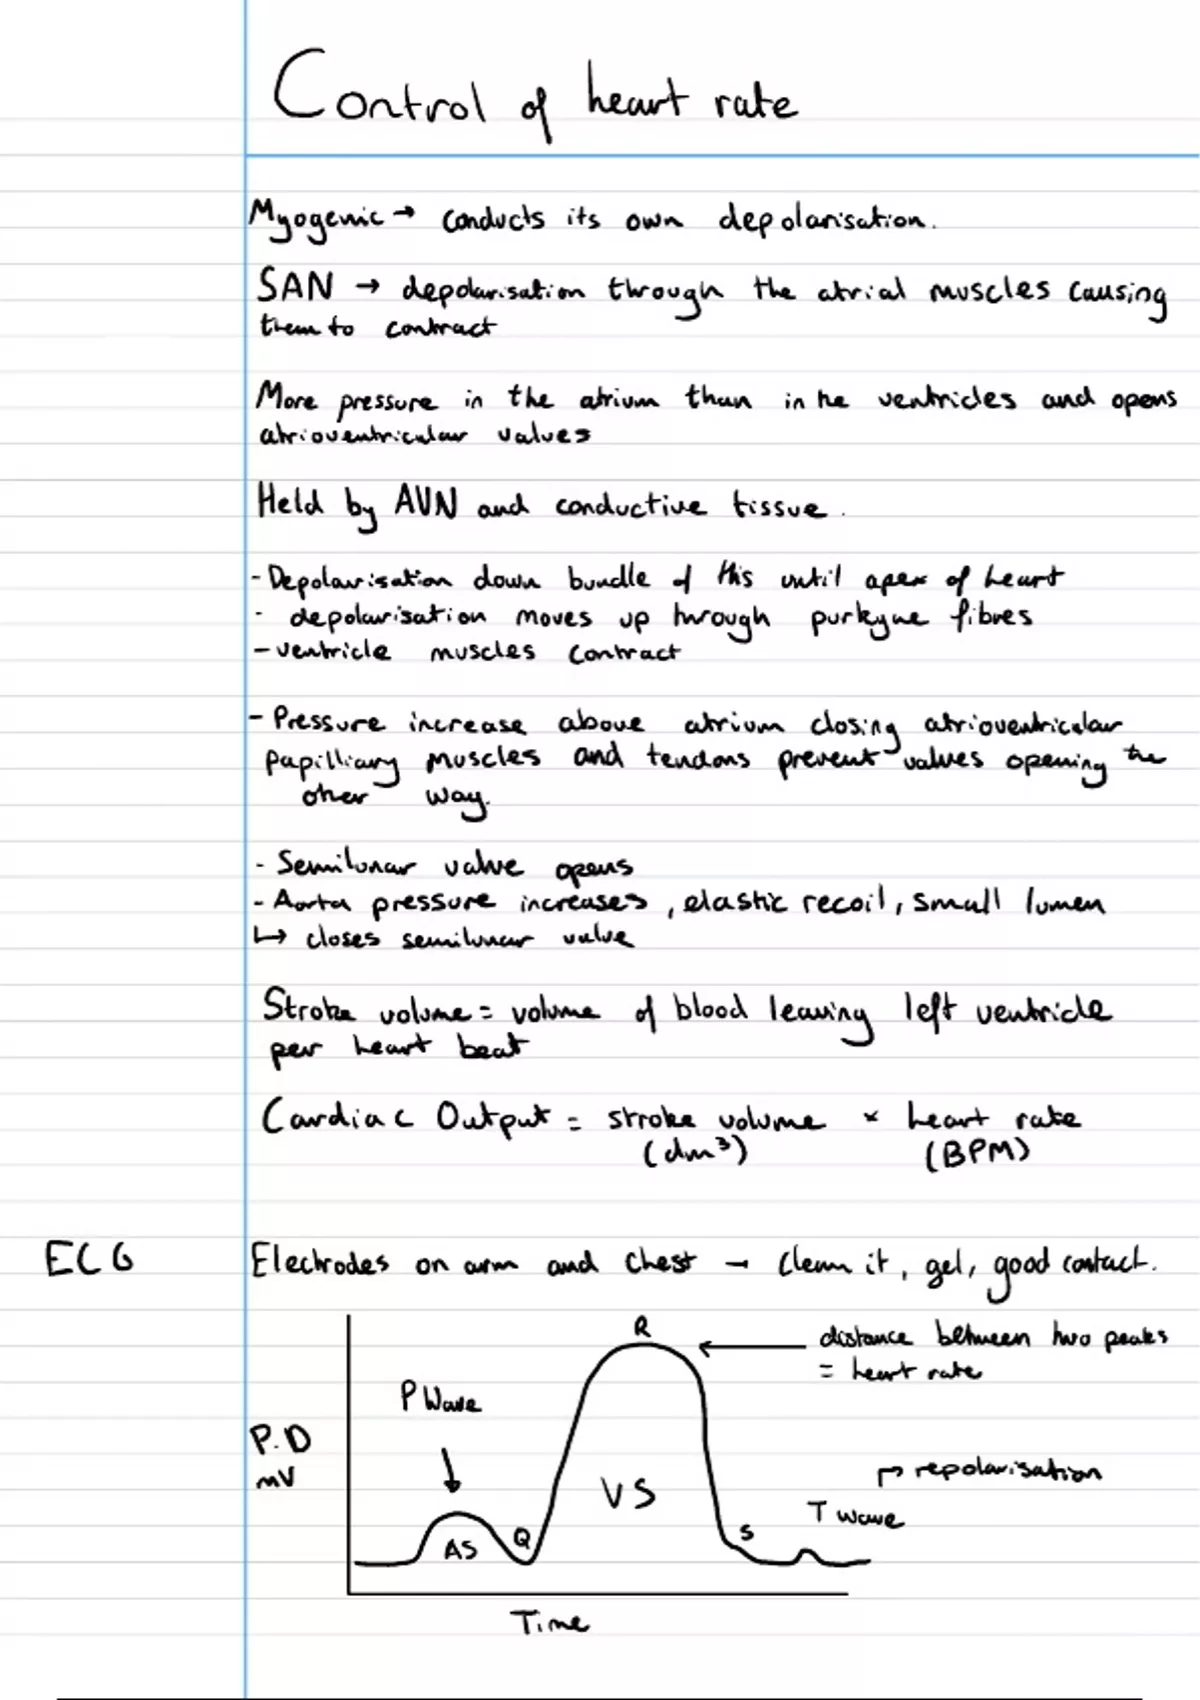 Control of heart rate
Myogenic → conducts its own depolarisation.
SAN → depolarisation through the atrial muscles causing
them to contract
More pressure in the atrium than in he ventricles and opens
atrioventricular valves
Held by AVN and conductive tissue.
- Depolarisation down bundle of His until apex of heart
- depolarisation moves up through purkyne fibres
- ventricle muscles contract
- Pressure increase above atrium closing atrioventricular
papilliary muscles and tendons prevent valves opening the
other way.
- Semilunar valve opens
- Aorta pressure increases, elastic recoil, small lumen
↳ closes semilunar valve
Stroke volume = volume of blood leaving left ventricle
per heart beat
Cardiac Output = stroke volume × heart rate
(dm³) (BPM)
ECG Electrodes on arm and chest → clean it, gel, good contact.
R
distance between two peaks
= heart rate
P Wave
P.D
mV
VS
↱ repolarisation
T wave
AS
Q
S
Time